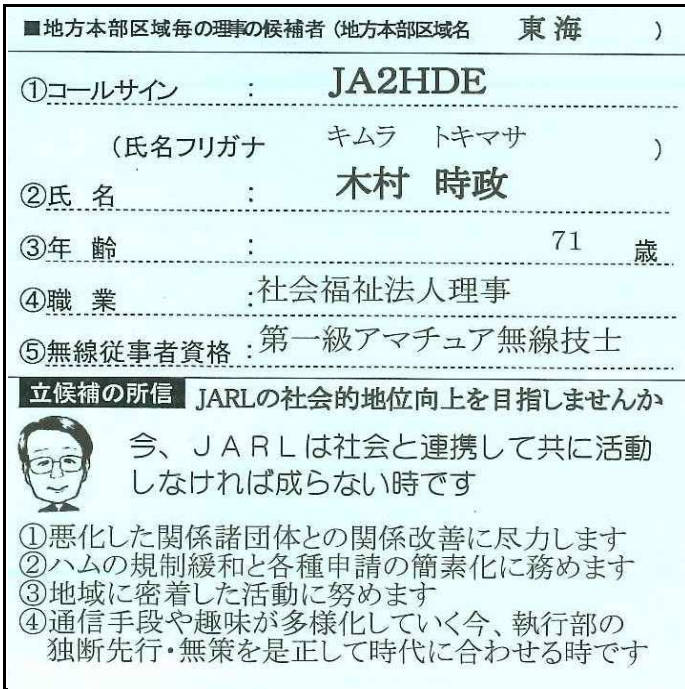 ■地方本部区域毎の理事の候補者 (地方本部区域名 東海 )
①コールサイン : JA2HDE
(氏名フリガナ キムラ トキマサ )
②氏 名 : 木村 時政
③年 齢 : 71 歳
④職 業 : 社会福祉法人理事
⑤無線従事者資格 : 第一級アマチュア無線技士
立候補の所信 JARLの社会的地位向上を目指しませんか
今、JARLは社会と連携して共に活動
しなければ成らない時です
①悪化した関係諸団体との関係改善に尽力します
②ハムの規制緩和と各種申請の簡素化に務めます
③地域に密着した活動に努めます
④通信手段や趣味が多様化していく今、執行部の
独断先行・無策を是正して時代に合わせる時です